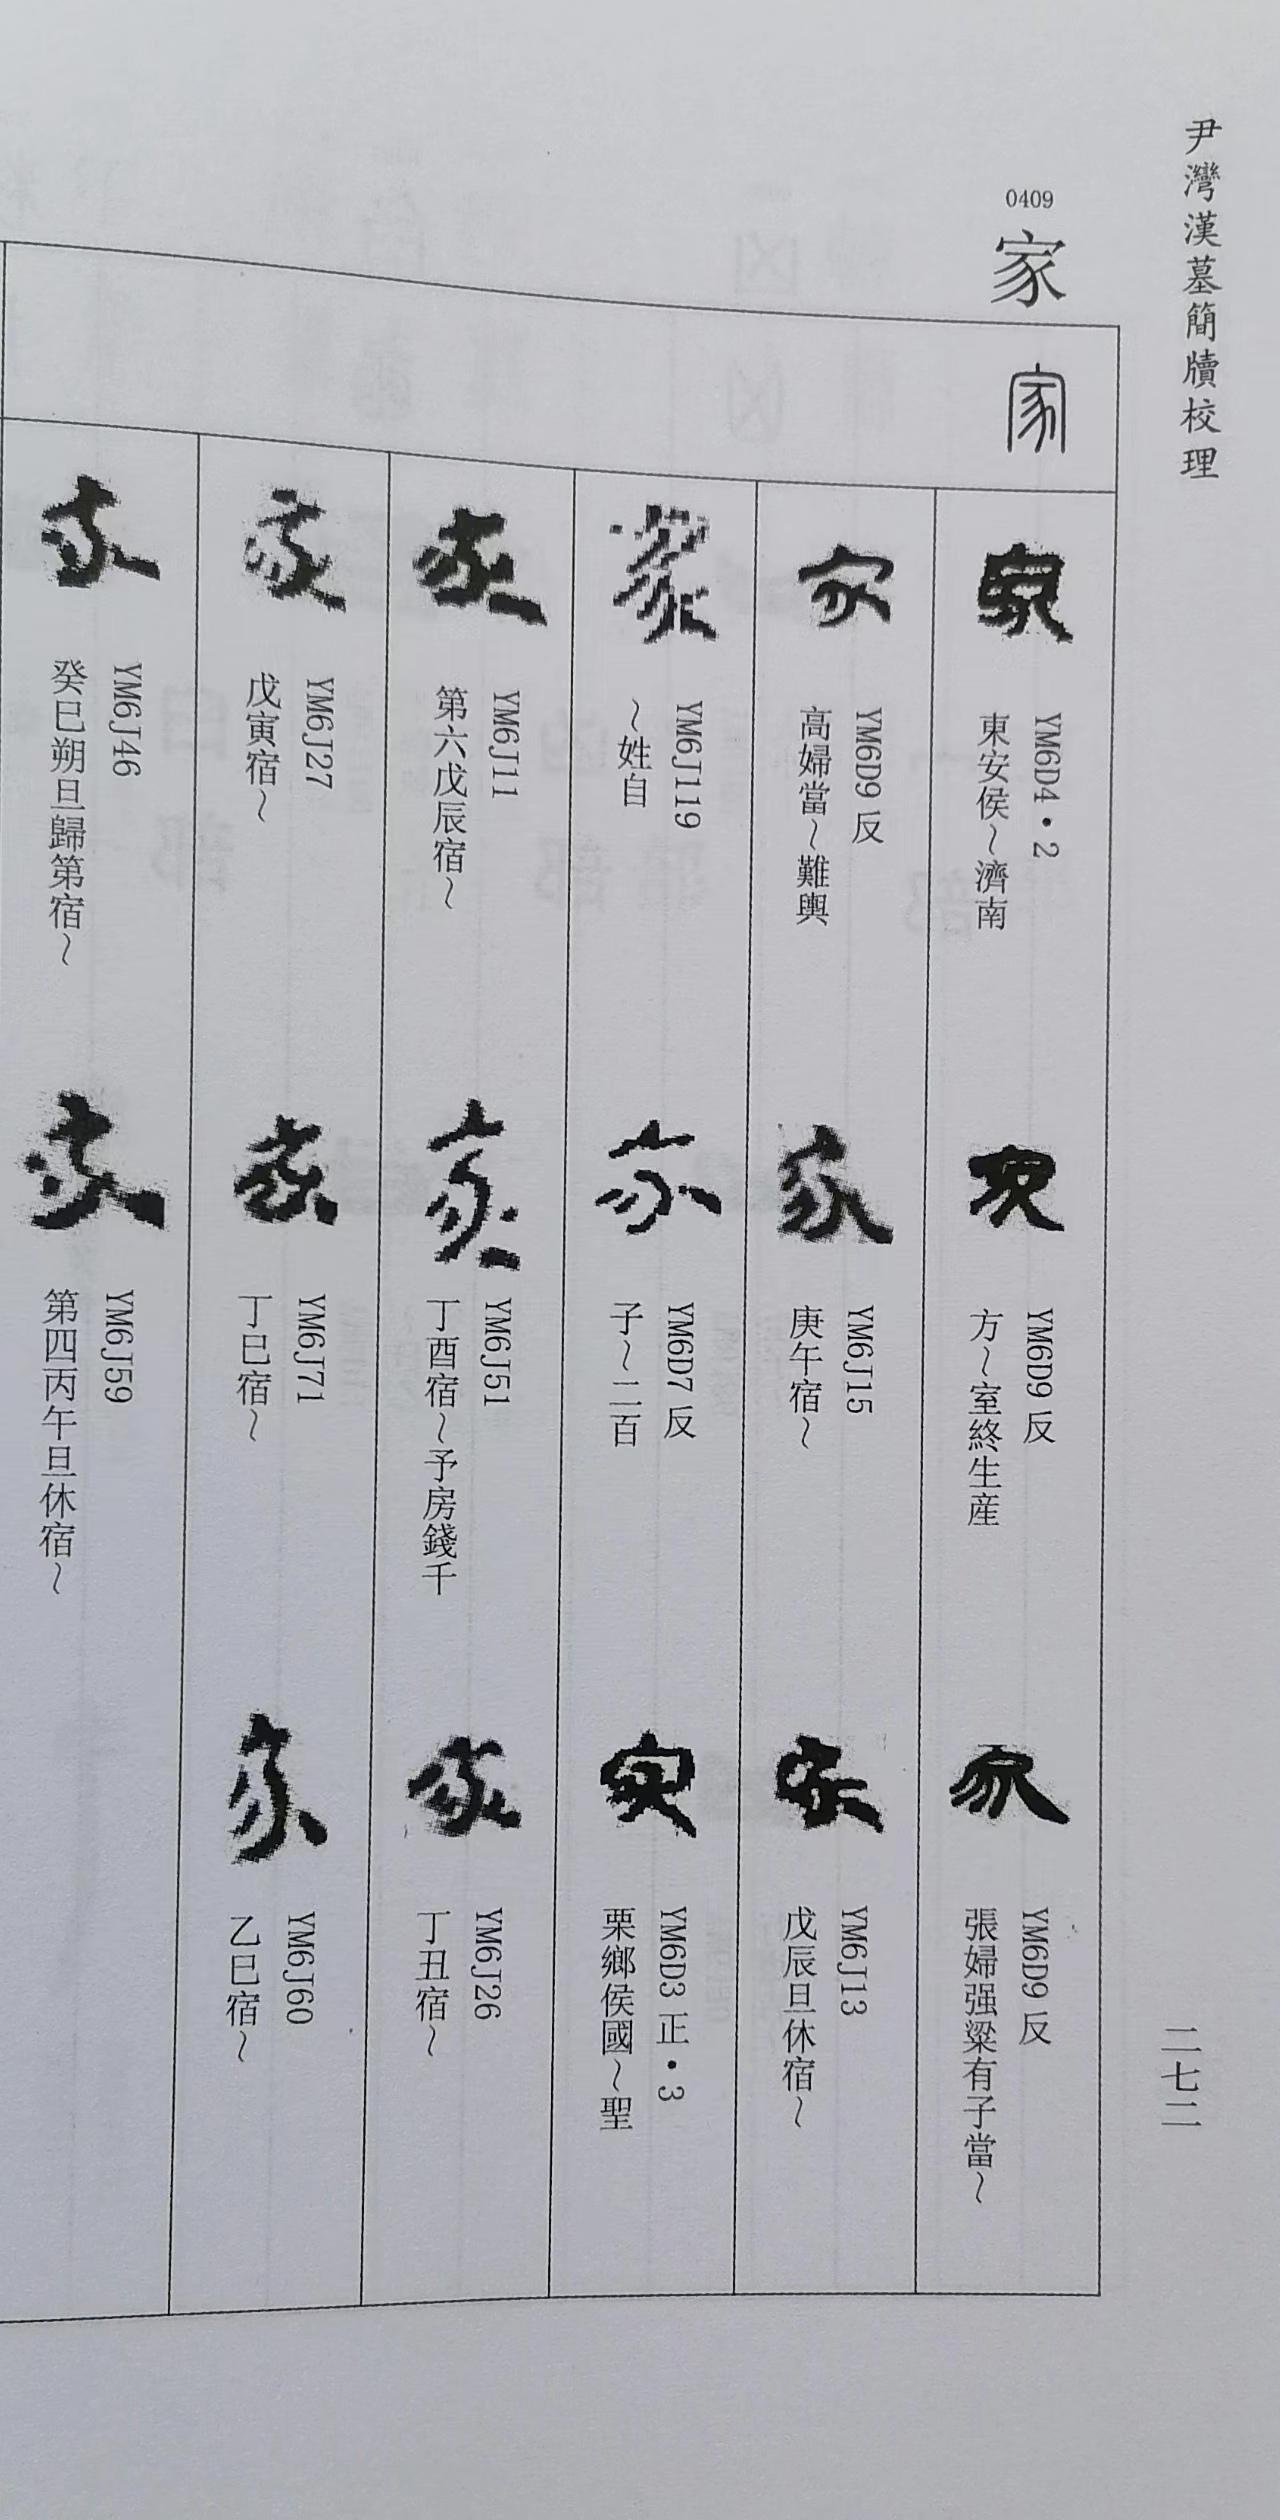 尹灣漢墓簡牘校理
二七二
0409
家
家
家
YM6D4·2
東安侯～濟南
家
YM6D9反
方～室終生産
家
YM6D9反
張婦强粱有子當～
家
YM6D9反
高婦當～難輿
家
YM6J15
庚午宿～
家
YM6J13
戊辰旦休宿～
家
YM6J119
～姓自
家
YM6D7反
子～二百
家
YM6D3正·3
栗鄉侯國～聖
家
YM6J11
第六戊辰宿～
家
YM6J51
丁酉宿～予房錢千
家
YM6J26
丁丑宿～
家
YM6J27
戊寅宿～
家
YM6J71
丁巳宿～
家
YM6J60
乙巳宿～
家
YM6J46
癸巳朔旦歸第宿～
家
YM6J59
第四丙午旦休宿～